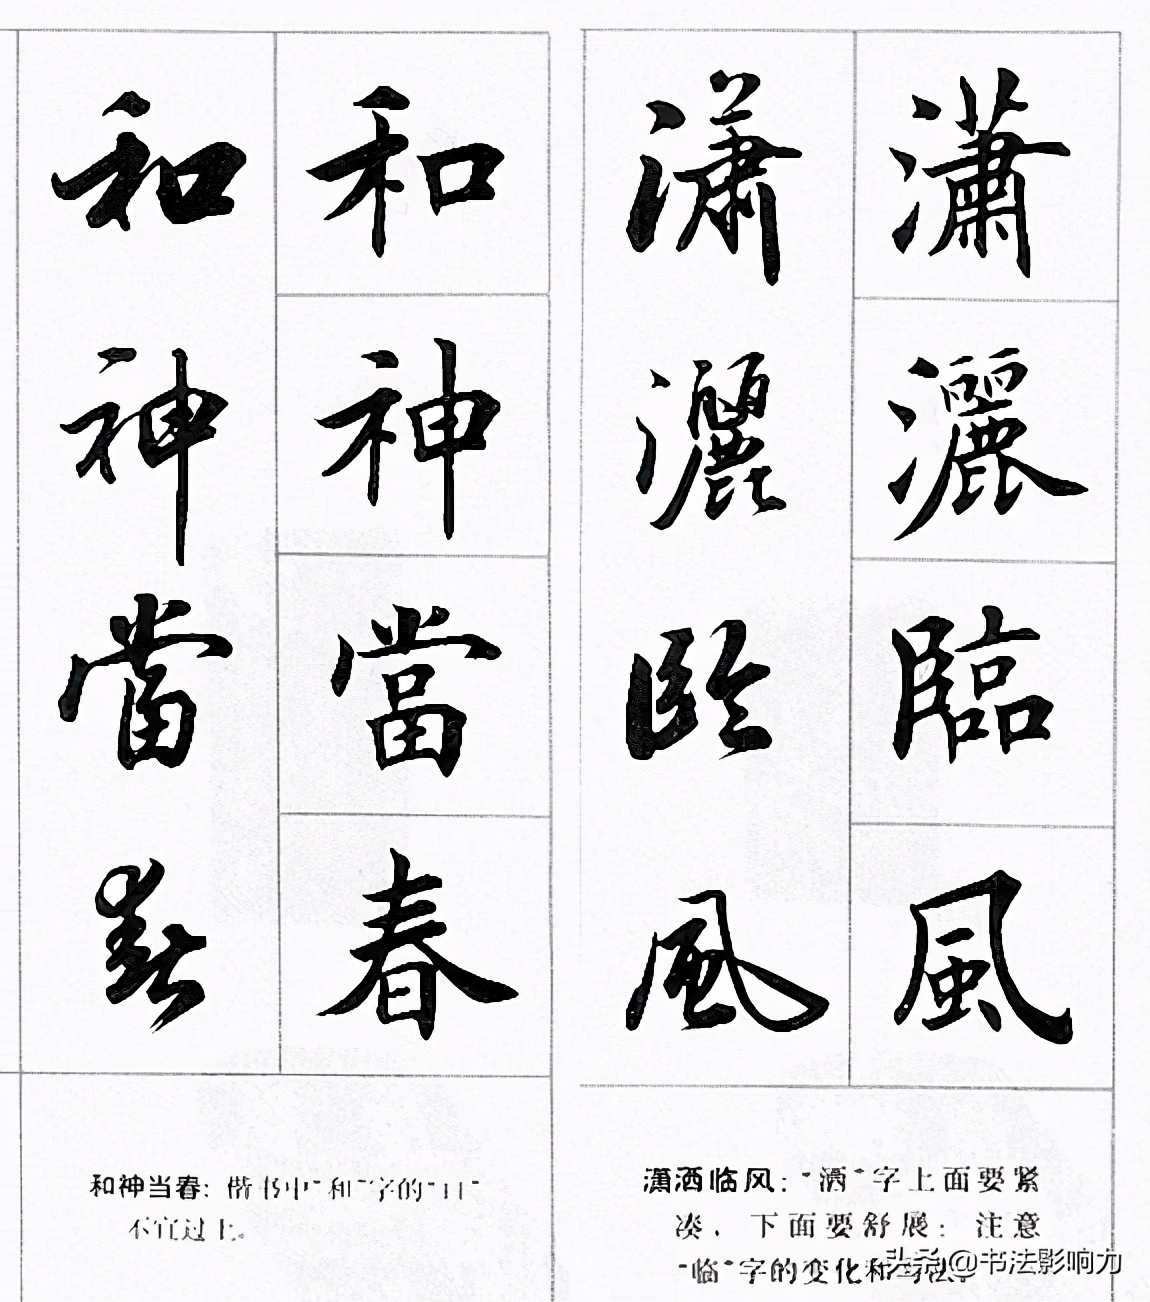 瀟灑臨風
瀟灑臨風
和神當春
和神當春
潇洒临风："洒"字上面要紧
凑，下面要舒展；注意
"临"字的变化和
头条@书法影响力
和神当春：楷书中"和"字的"口"
不宜过上。